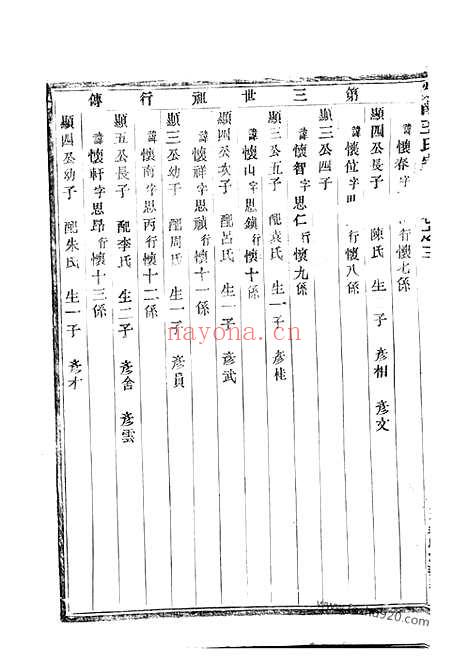 諱懷春字 行懷七係
顯四公長子 陳氏 生 子 彦相 彦文
諱懷位字 行懷八係
顯三公四子
諱懷智字思仁行懷九係
顯三公五子 配袁氏 生一子 彦桂
諱懷山字思鎮行懷十係
顯四公次子 配呂氏 生一子 彦武
諱懷祥字思禎行懷十一係
顯三公幼子 配周氏 生一子 彦員
諱懷南字思丙行懷十二係
顯五公長子 配李氏 生二子 彦舍 彦雲
諱懷軒字思昂行懷十三係
顯四公幼子 配朱氏 生一子 彦才
第三世祖行傳
nayona.cn